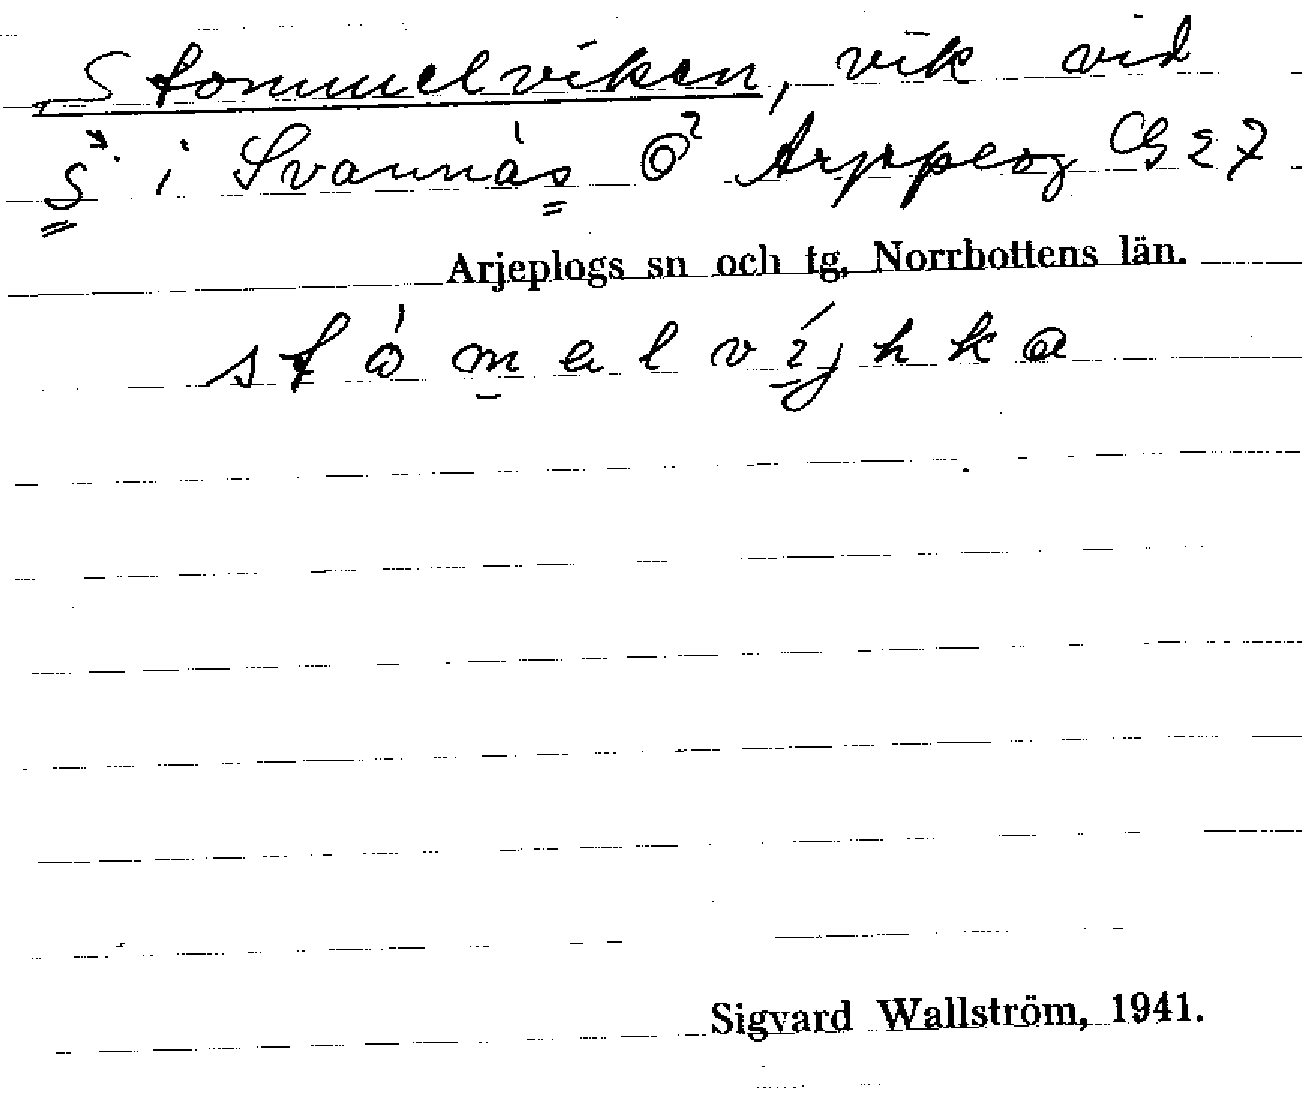 Stommelviken, vik vid
S. i Svannäs Ö Arjeplog G 27
Arjeplogs sn och tg, Norrbottens län.
Sigvard Wallström, 1941.